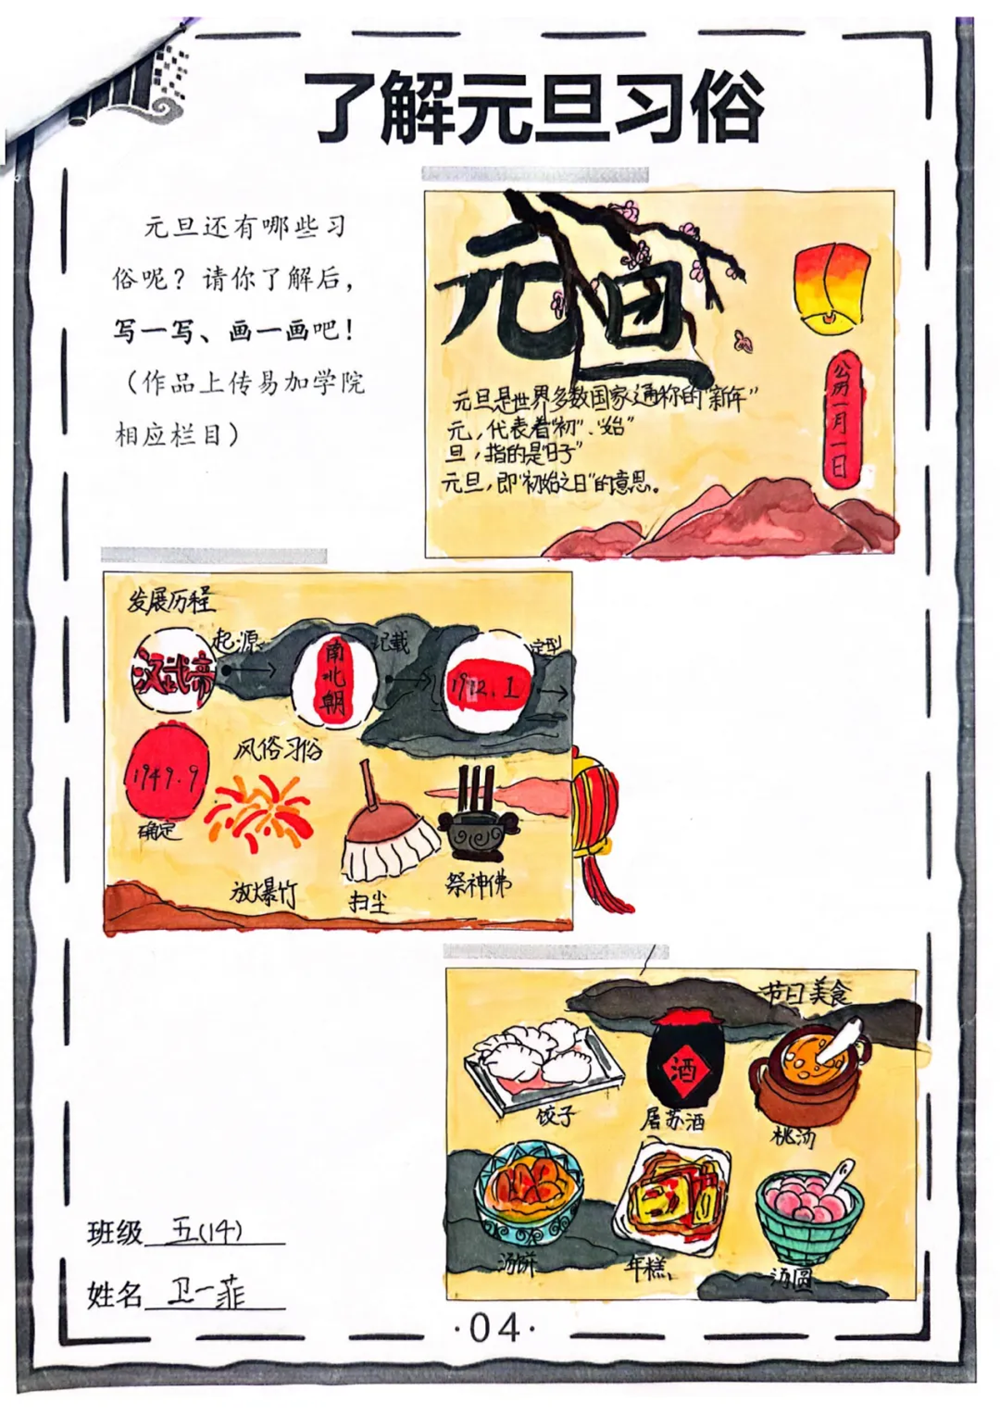 了解元旦习俗
元旦还有哪些习
俗呢？请你了解后，
写一写、画一画吧！
（作品上传易加学院
相应栏目）
元旦
公历一月一日
元旦是世界多数国家通称的“新年”
元，代表着“初”、“始”
旦，指的是“日子”
元旦，即“初始之日”的意思。
发展历程
汉武帝
起源
南北朝
记载
1912.1
定型
1949.9
确定
风俗习俗
放爆竹
扫尘
祭神佛
节日美食
酒
饺子
屠苏酒
桃汤
汤饼
年糕
汤圆
班级 五(14)
姓名 卫一菲
·04·